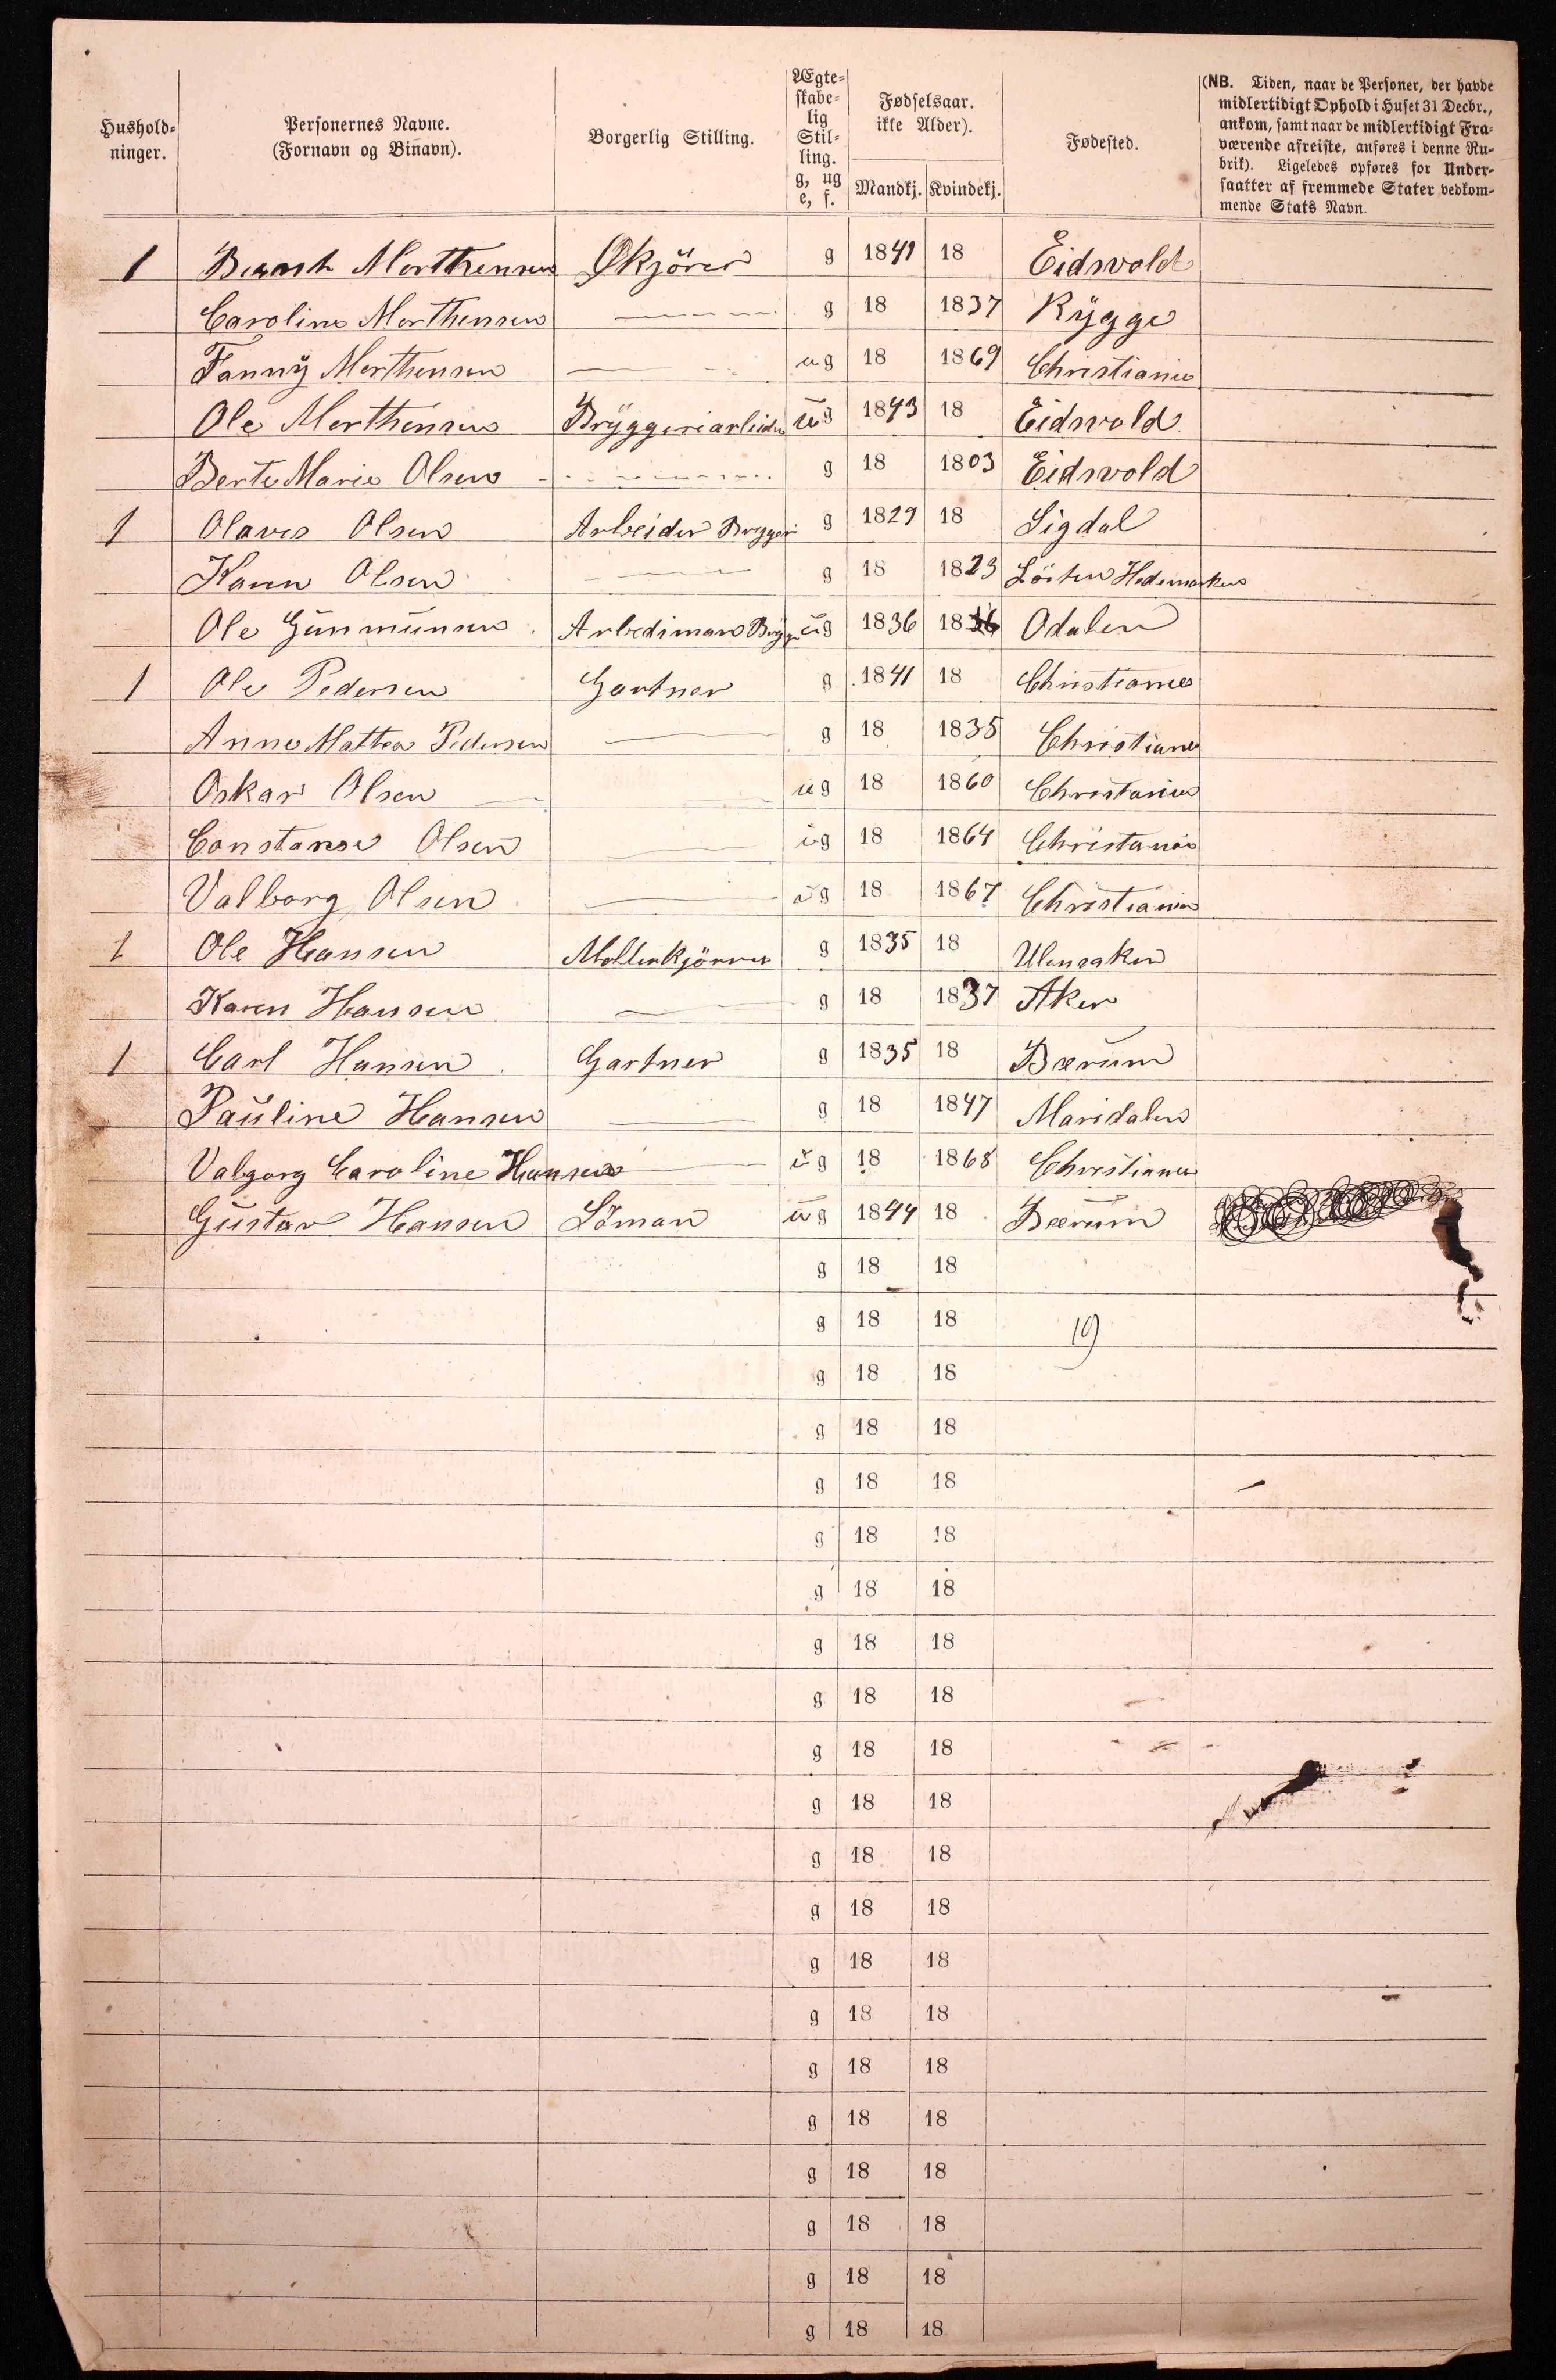 Hushold-
ninger.
Personernes Navne.
(Fornavn og Binavn).
Borgerlig Stilling.
Ægte-
skabe-
lig
Stil-
ling.
g, ug
e, f.
Fødselsaar.
ikke Alder).
Mandkj. Kvindekj.
Fødested.
(NB. Tiden, naar de Personer, der havde
midlertidigt Ophold i Huset 31 Decbr.,
ankom, samt naar de midlertidigt Fra-
værende afreiste, anføres i denne Ru-
brik). Ligeledes opføres for Under-
saatter af fremmede Stater vedkom-
mende Stats Navn.
1 Berent Morthensen Ølkjörer g 1841 18 Eidsvold
Caroline Morthensen g 18 1837 Rygge
Fanny Morthensen ug 18 1869 Christiania
Ole Morthensen Bryggeriarbeider ug 1843 18 Eidsvold
Berte Marie Olsen g 18 1803 Eidsvold
1 Olaves Olsen Arbeider Bryggeri g 1829 18 Sigdal
Karen Olsen g 18 1823 Löiten Hedemarken
Ole Gunmunsen ug 1836 18 Odalen
1 Ole Pedersen Gartner g 1841 18 Christiania
Anne Mattea Pedersen g 18 1835 Christiania
Oskar Olsen ug 18 1860 Christania
Constanse Olsen ug 18 1864 Christania
Valborg Olsen ug 18 1867 Christiania
1 Ole Hansen Molterkjörer g 1835 18 Ulensaker
Karen Hansen g 18 1837 Aker
1 Carl Hansen Gartner g 1835 18 Bærum
Pauline Hansen g 18 1847 Maridalen
Valgorg Caroline Hansen ug 18 1868 Christiania
Gustav Hansen Söman ug 1844 18 Bærum
g 18 18
g 18 18 19
g 18 18
g 18 18
g 18 18
g 18 18
g 18 18
g 18 18
g 18 18
g 18 18
g 18 18
g 18 18
g 18 18
g 18 18
g 18 18
g 18 18
g 18 18
g 18 18
g 18 18
g 18 18
g 18 18